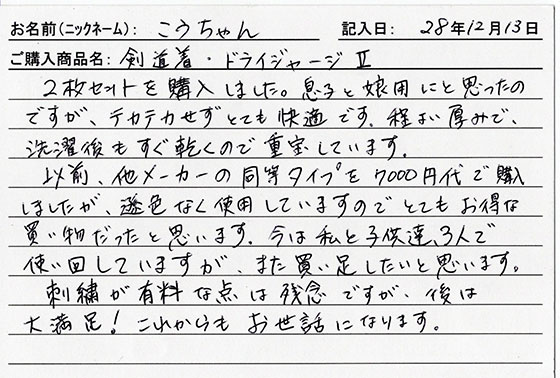 お名前(ニックネーム): こうちゃん 記入日: 28年12月13日
ご購入商品名: 剣道着・ドライジャージⅡ
2枚セットを購入しました。息子と娘用にと思ったの
ですが、テカテカせずとても快適です。程よい厚みで、
洗濯後もすぐ乾くので重宝しています。
以前、他メーカーの同等タイプを7000円代で購入
しましたが、遜色なく使用していますのでとてもお得な
買い物だったと思います。今は私と子供達、3人で
使い回していますが、また買い足したいと思います。
刺繍が有料な点は残念ですが、後は
大満足!これからもお世話になります。